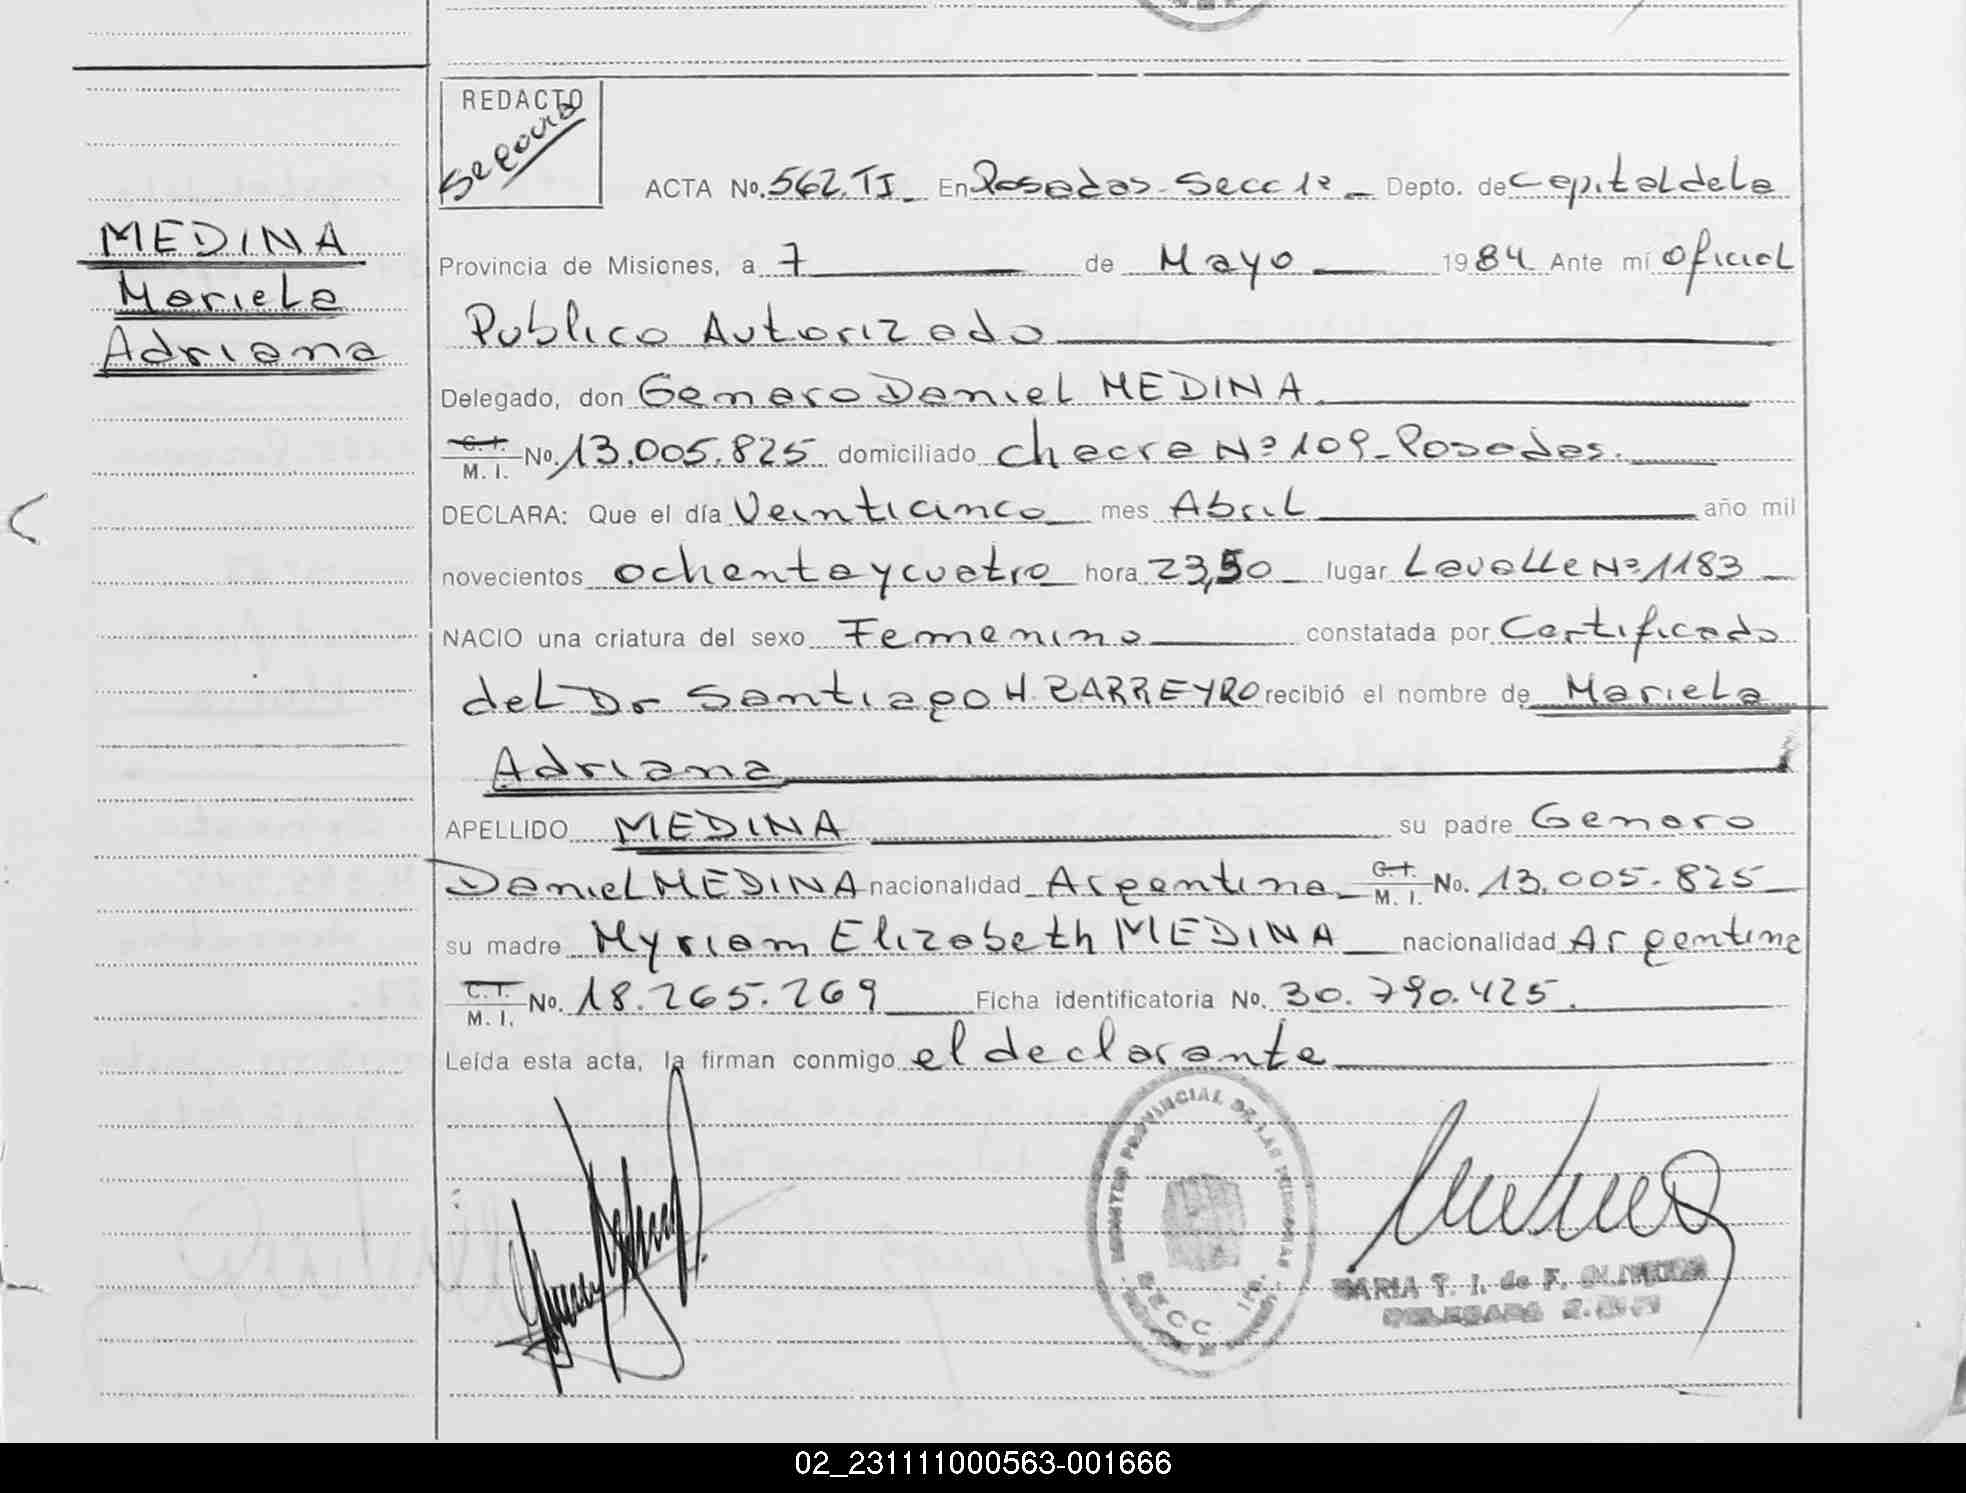 REDACTO
Segovia
ACTA No. 562. TI En Posadas. Secc 1ª Depto. de Capital de la
MEDINA
Mariela
Adriana
Provincia de Misiones, a 7 de Mayo 1984 Ante mí Oficial
Publico Autorizado
Delegado, don Genaro Daniel MEDINA
C. I.
M. I. No. 13.005.825 domiciliado chacra Nº 109 - Posadas.
DECLARA: Que el día Veinticinco mes Abril año mil
novecientos ochenta y cuatro hora 23,50 lugar Lavalle Nº 1183
NACIO una criatura del sexo Femenino constatada por Certificado
del Dr Santiago H. BARREYRO recibió el nombre de Mariela
Adriana
APELLIDO MEDINA su padre Genaro
Daniel MEDINA nacionalidad Argentina C. I. M. I. No. 13.005.825
su madre Myriam Elizabeth MEDINA nacionalidad Argentina
C. I.
M. I. No. 18.265.269 Ficha identificatoria No. 30.790.425.
Leída esta acta, la firman conmigo el declarante
REGISTRO PROVINCIAL DE LAS PERSONAS
SECC. 1ra.
MARIA T. I. de F. OLIVEIRA
DELEGADA
02_231111000563-001666